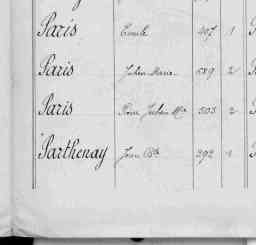 Paris Emile 407 1
Paris Julien Marie 589 2
Paris Pierre Julien Mie 503 2
Parthenay Jean Bte 392 1